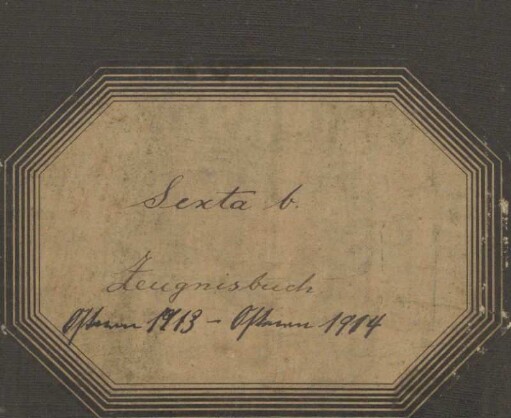 Sexta b.
Zeugnisbuch
Ostern 1913 – Ostern 1914